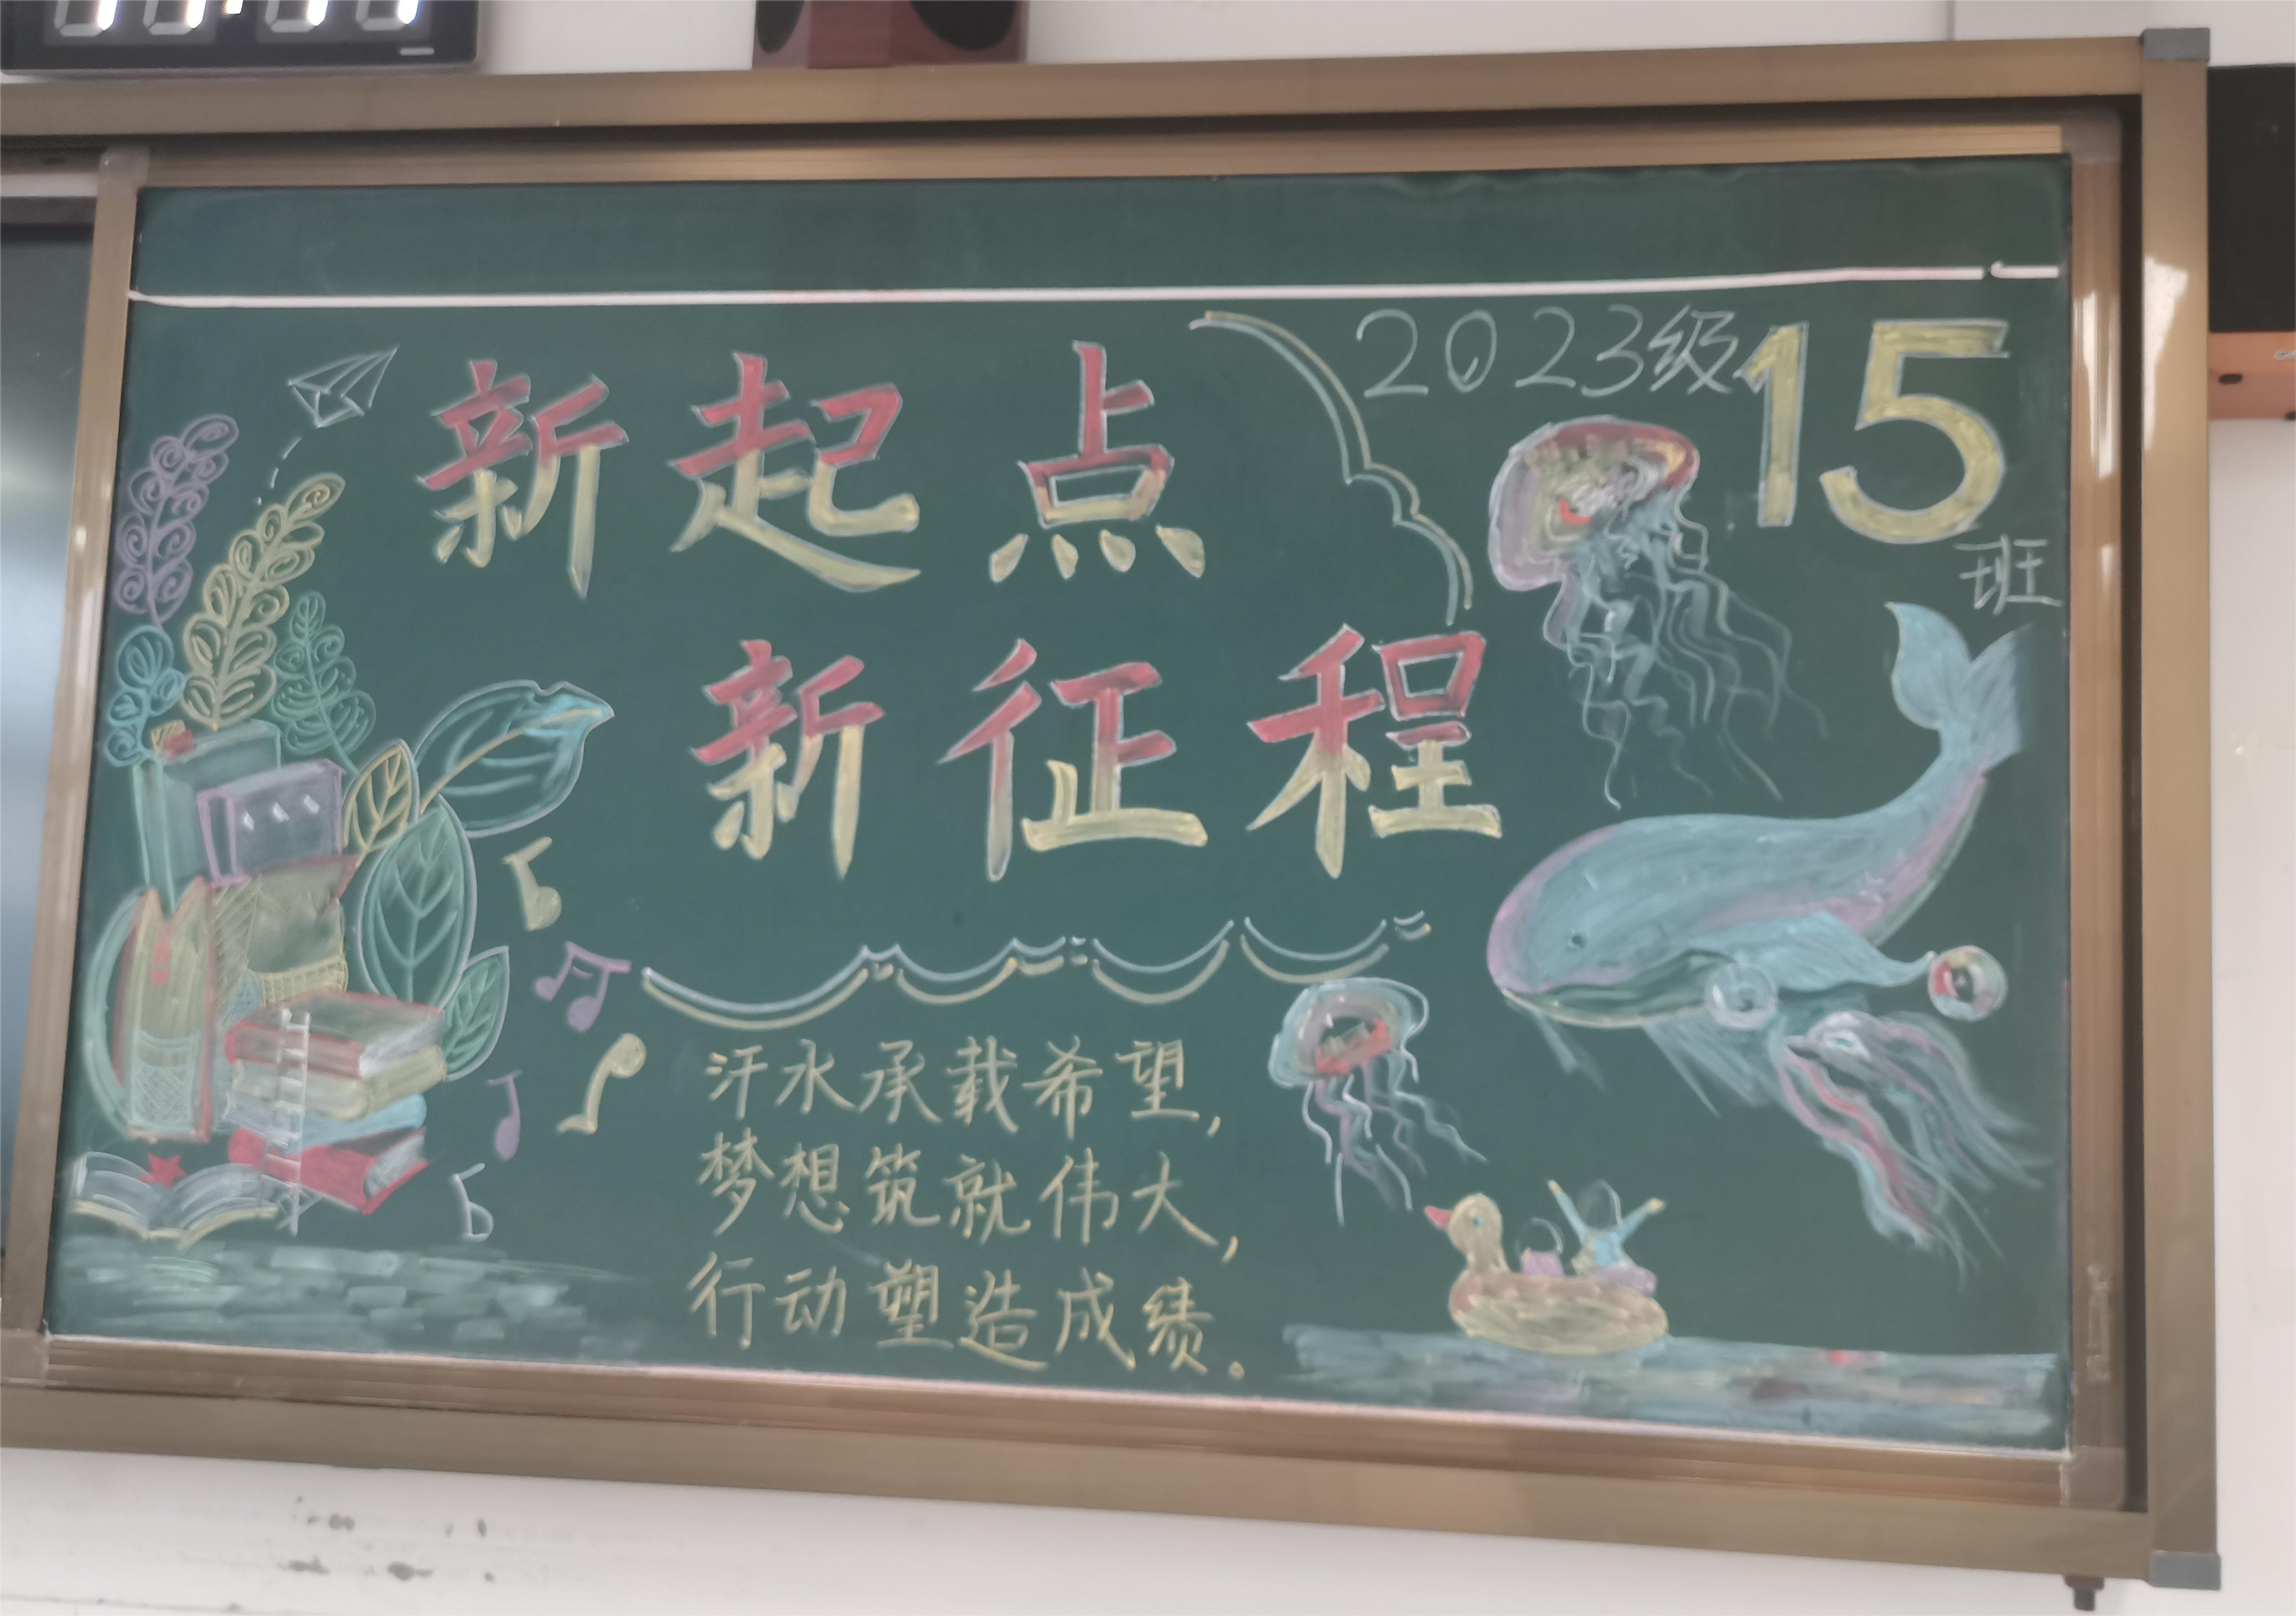 2023级15班
新起点
新征程
汗水承载希望,
梦想筑就伟大,
行动塑造成绩.